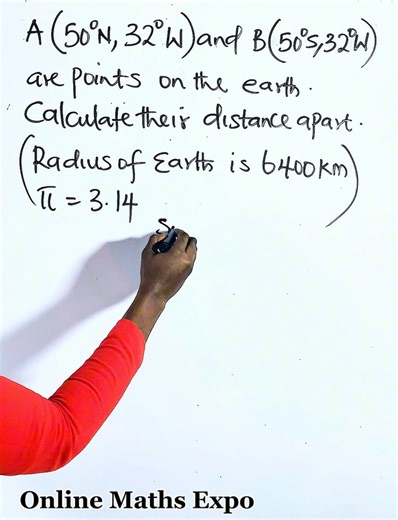 A (50°N, 32°W) and B(50°S, 32°W)
are points on the earth.
Calculate their distance apart.
(Radius of Earth is 6400km)
π = 3.14
S
Online Maths Expo